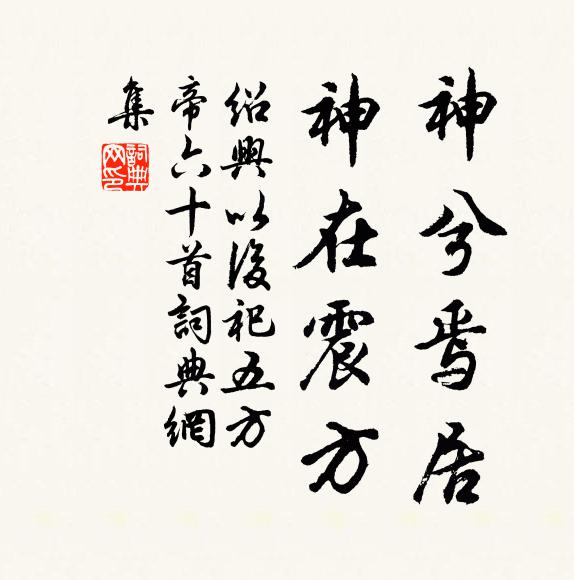 神兮焉居
神在震方
紹興以後祀五方
帝六十首詞典網
集
詞典網印